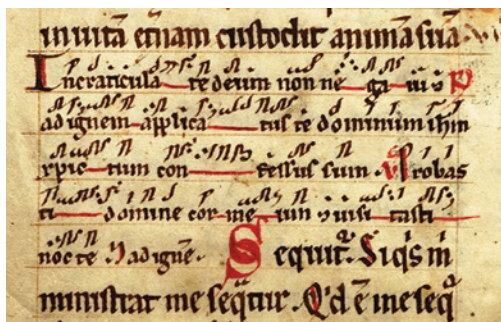 inuitā et̄nam custodit animā suā
Incraticula te deum non ne ga ui ⁊
ad ignem applica tus te dominum ihm
xpic tum con fessus sum V Probas
ti domine cor me um ⁊ uisi tasti
nocte Ad ignē. Sequit᷑. Siq̇s m
ministrat me seq̄tur. Qd̓ ē me seq̄